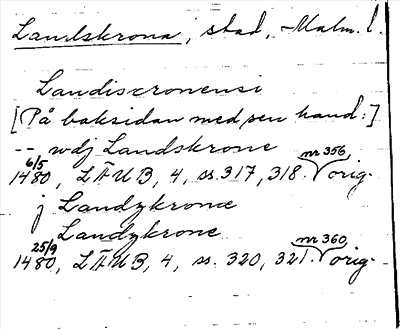 Landskrona, stad, Malm. l.
Landiscronensi
[På baksidan med sen hand:]
-- wdj Landskrone
1480 6/5, LÄUB, 4, ss. 317, 318. nr 356 orig.
j Landzkrone
Landzkrone
1480 25/9, LÄUB, 4, ss. 320, 321. nr 360 orig.